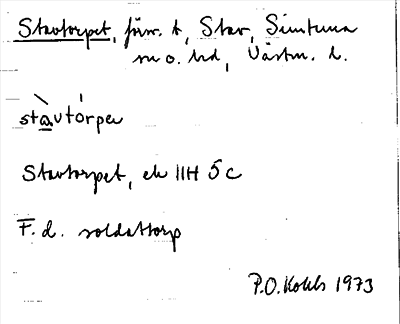 Stavtorpet, förr. t, Stav, Simtuna
sn o. hd, Västm. l.
stavtòrpeɩ
Stavtorpet, ek 11H 5c
F. d. soldattorp
P.O. Kohls 1973